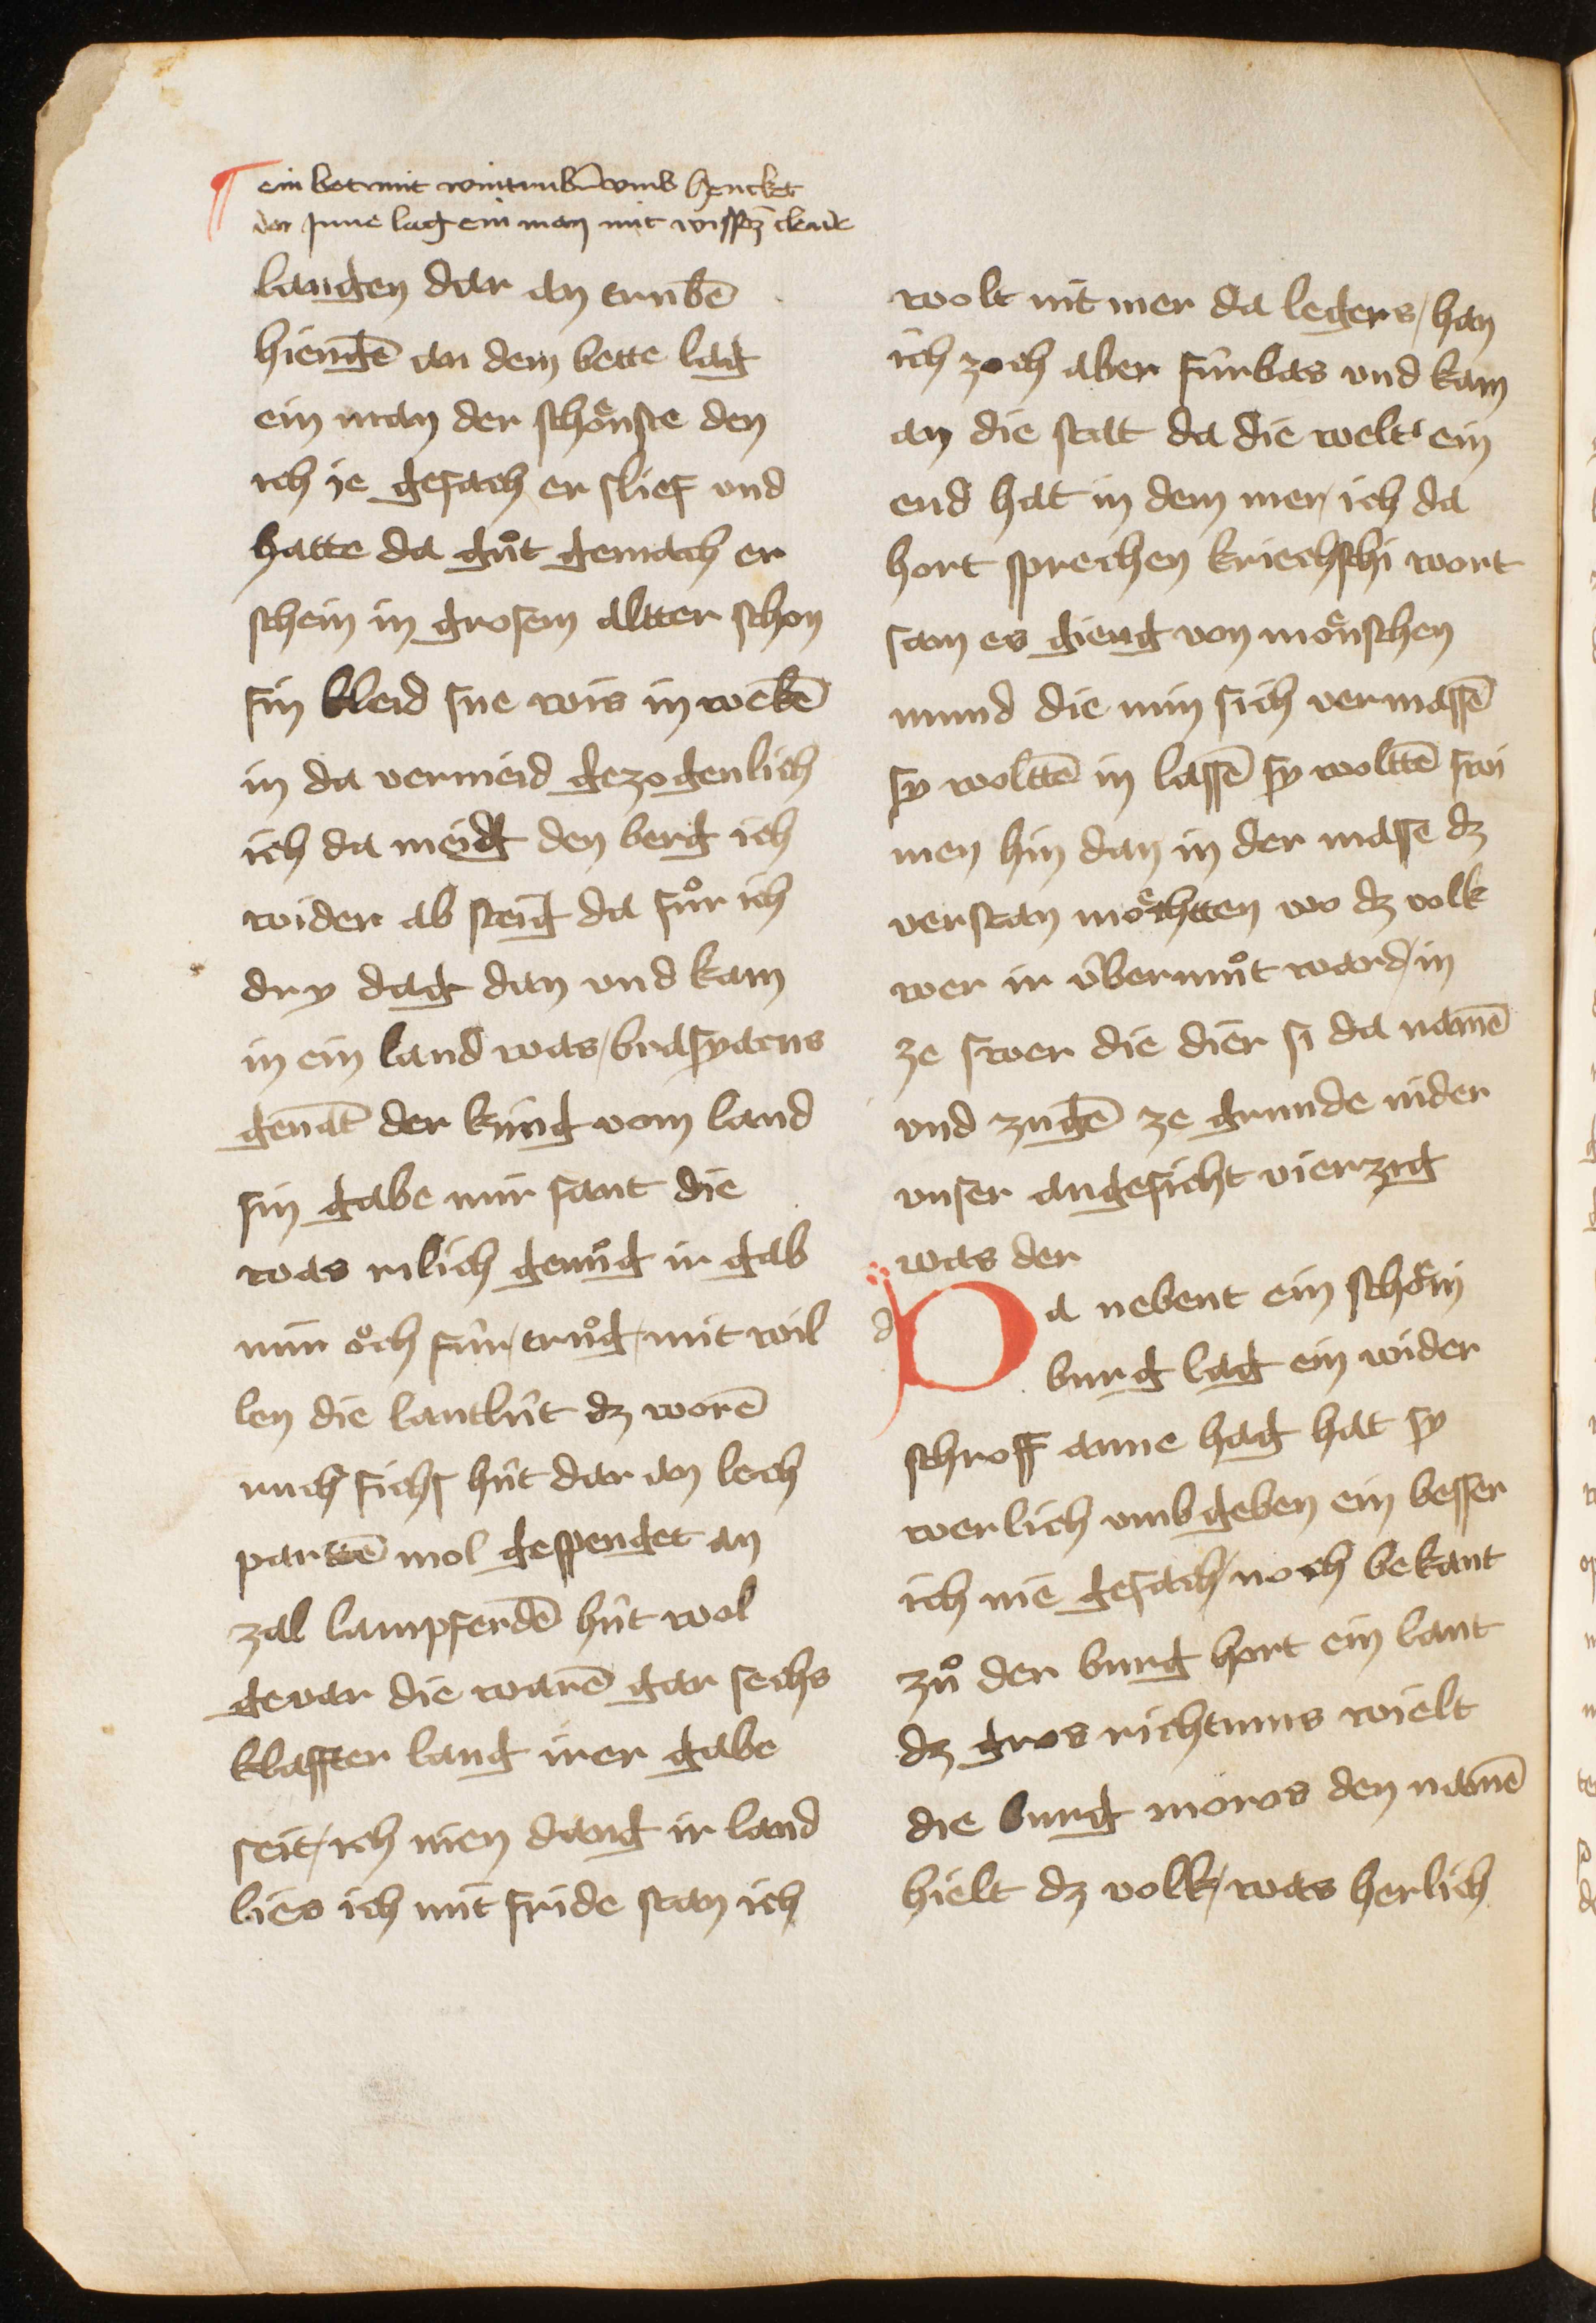 ein bet mit wintrubē vmb henckēt
dar Inne lag ein man mit wissēz cleide
langen dar an trubē
hiengē an dem bette lag
ein man der schönste den
ich ie gesach er slief vnd
hatte da gůt gemach er
schein in grosem altter schon
sin kleid sne wis in wekē
in da vermeid gezogenlich
ich da meidt den berg ich
wider ab steig da fůr ich
dry dag dan vnd kam
in ein land was brasyacus
genāt der kúng vom land
sin gabe mir sant die
was rilich genůg ir gab
mir och fúr trůg mit wil
len die lantlút dz worē
ruch fichs hút dar an lech
partē mol gespenget an
zal lampferdē hút wol
gevar die warē gar sechs
klaffter lang irer gabe
seit ich nien dang ir land
lies ich mit fride stan ich
wolt nit mer da legers han
ich zoch aber fúrbas vnd kam
an die stat da die welt ein
end hat in dem mer ich da
hort sprechen kriechschi wort
sam es gieng von mönschen
mund die min sich vermassē
sy wolttē in lassē sy wolttē swi
men hin dan in der mase dz
verstan möchtten wo dz volk
wer ir úbermůt ward in
ze swer die dier si da namē
vnd zugē ze grunde nider
vnser angesicht vierzig
was der
d Da nebent ein schöni
burg lag ein wider
schroff anne hag hat sy
werlich vmbgeben ein besser
ich nie gesach noch bekant
zů der burg hort ein lant
dz gros richtums wielt
die burg moros den namē
hielt dz volk was herlich